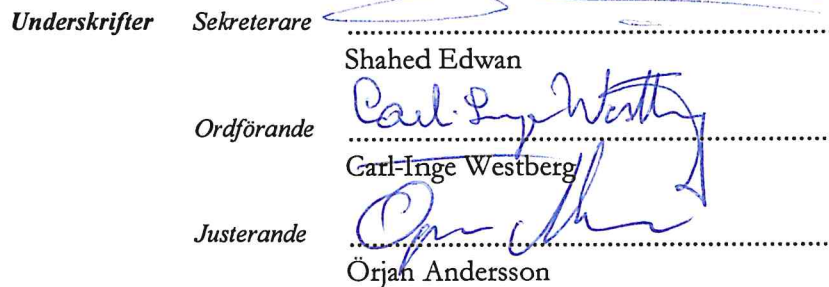 Underskrifter Sekreterare
Shahed Edwan
Carl-Inge Westberg
Ordförande
Carl-Inge Westberg
Justerande
Örjan Andersson